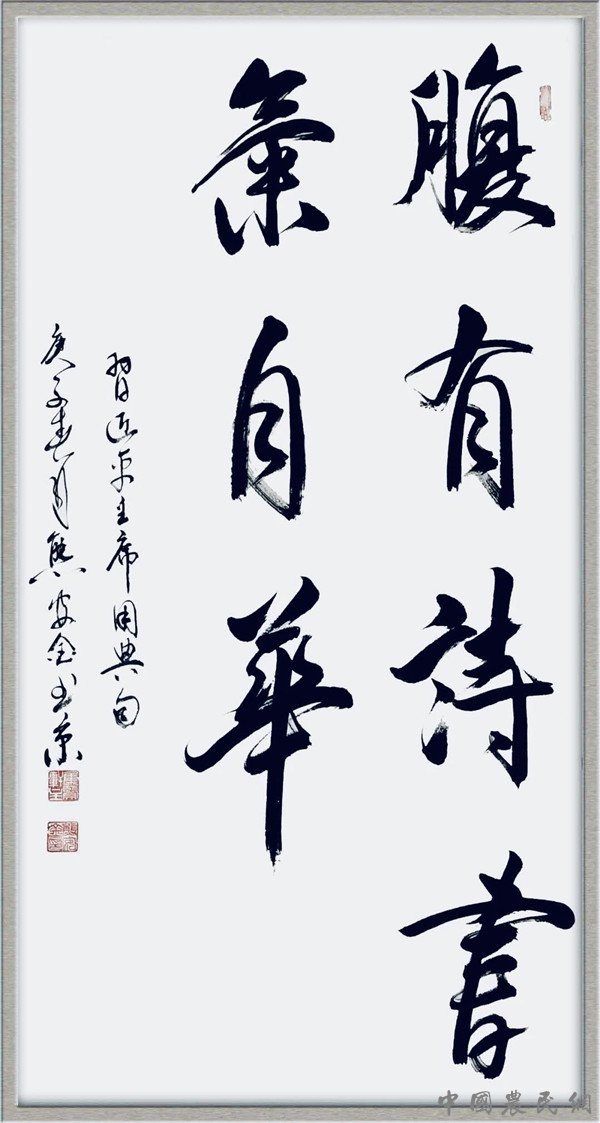 腹有詩書
氣自華
習近平主席用典句
庚子春月熊安金书於京
中國農民網